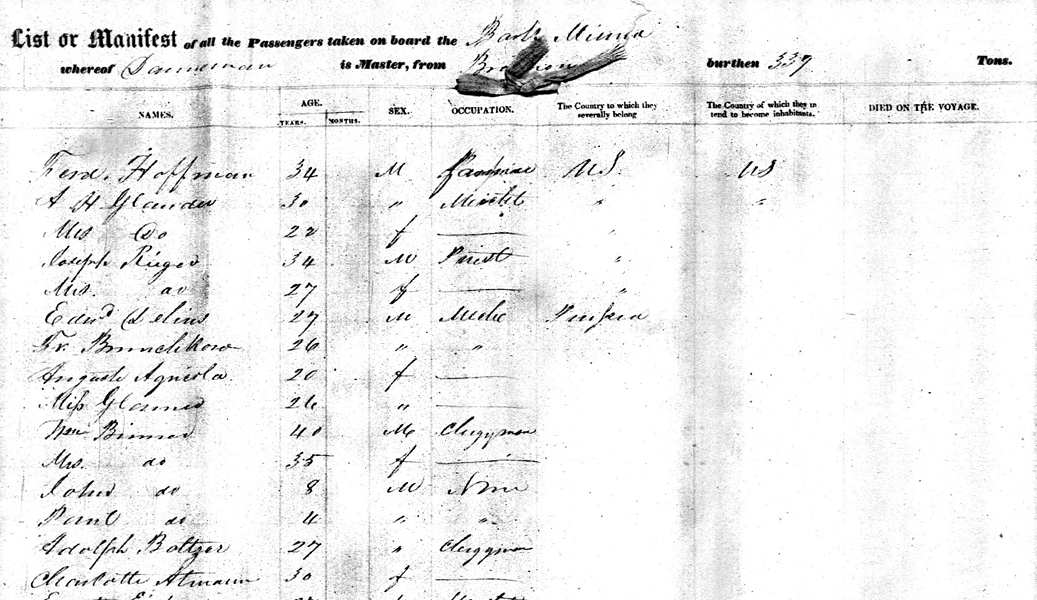 List or Manifest of all the Passengers taken on board the Bark Minna
whereof Danneman is Master, from burthen 339 Tons.
NAMES. AGE. YEARS. MONTHS. SEX. OCCUPATION. The Country to which they severally belong The Country of which they intend to become inhabitants. DIED ON THE VOYAGE.
Ferd. Hoffman 34 M US US
A H Glander 30 " " "
Mrs Do 22 f —— "
Joseph Rieger 34 M Priest "
Mrs. do 27 f —— "
Edwd Delius 27 M
Fr. 26 " "
Auguste Agricola 20 f ——
Miss 26 " ——
Wm Binner 40 M Clergyman
Mrs. do 35 f ——
John do 8 M None
Paul do 4 " "
Adolph Baltzer 27 " Clergyman
Charlotte Atmann 30 f ——